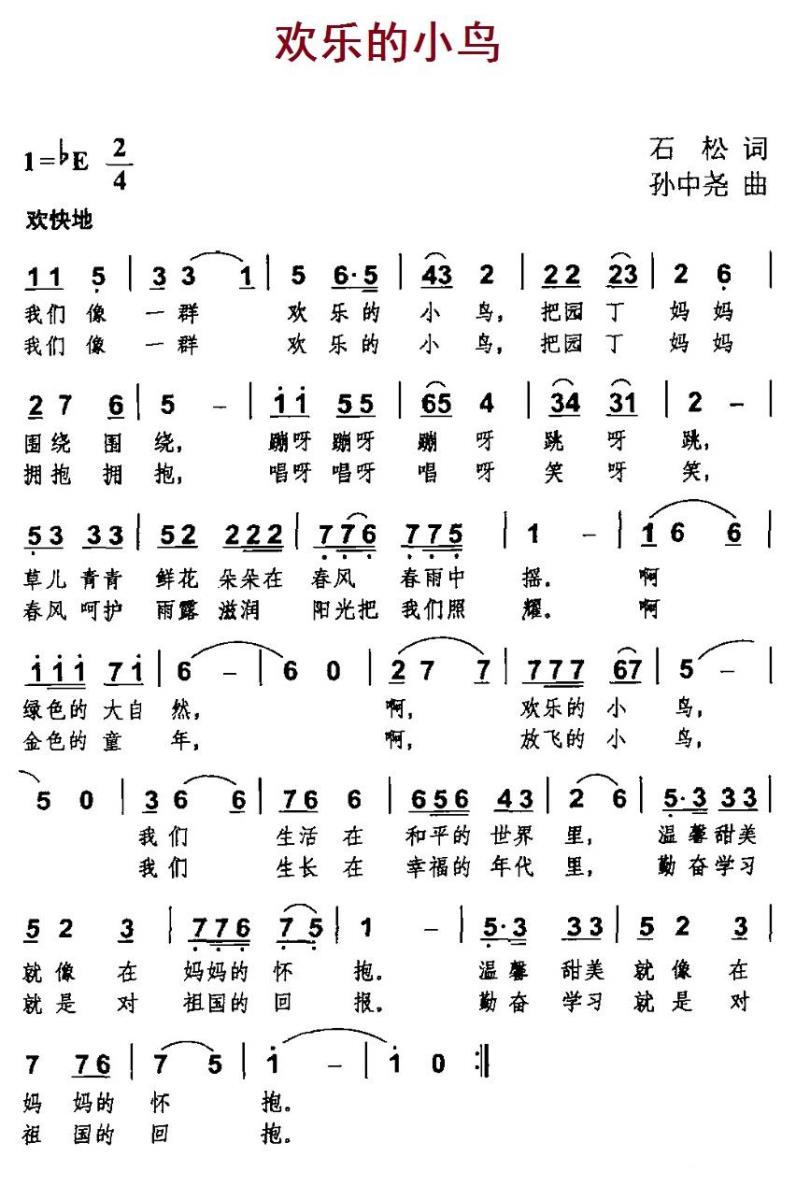 欢乐的小鸟
1=♭E 2/4
石 松 词
孙中尧 曲
欢快地
1 1 5 | 3 3 1 | 5 6·5 | 43 2 | 22 23 | 2 6 |
我们 像 一 群 欢 乐 的 小 鸟, 把园 丁 妈 妈
我们 像 一 群 欢 乐 的 小 鸟, 把园 丁 妈 妈
2 7 6 | 5 – | 1 1 5 5 | 65 4 | 34 31 | 2 – |
围 绕 围 绕, 蹦呀 蹦呀 蹦 呀 跳 呀 跳,
拥 抱 拥 抱, 唱呀 唱呀 唱 呀 笑 呀 笑,
5 3 3 3 | 5 2 2 2 2 | 7 7 6 7 7 5 | 1 – | 1 6 6 |
草儿 青青 鲜花 朵朵在 春风 春雨中 摇. 啊
春风 呵护 雨露 滋润 阳光把 我们照 耀. 啊
1 1 1 7 1 | 6 – | 6 0 | 2 7 7 | 7 7 7 67 | 5 – |
绿色的 大自 然, 啊, 欢乐的 小 鸟,
金色的 童 年, 啊, 放飞的 小 鸟,
5 0 | 3 6 6 | 7 6 6 | 6 5 6 4 3 | 2 6 | 5·3 3 3 |
我 们 生活 在 和平的 世界 里, 温馨甜美
我 们 生长 在 幸福的 年代 里, 勤奋学习
5 2 3 | 7 7 6 7 5 | 1 – | 5·3 3 3 | 5 2 3 |
就 像 在 妈妈的 怀 抱. 温馨 甜美 就 像 在
就 是 对 祖国的 回 报. 勤奋 学习 就 是 对
7 7 6 | 7 5 | 1 – | 1 0 :||
妈 妈的 怀 抱.
祖 国的 回 抱.